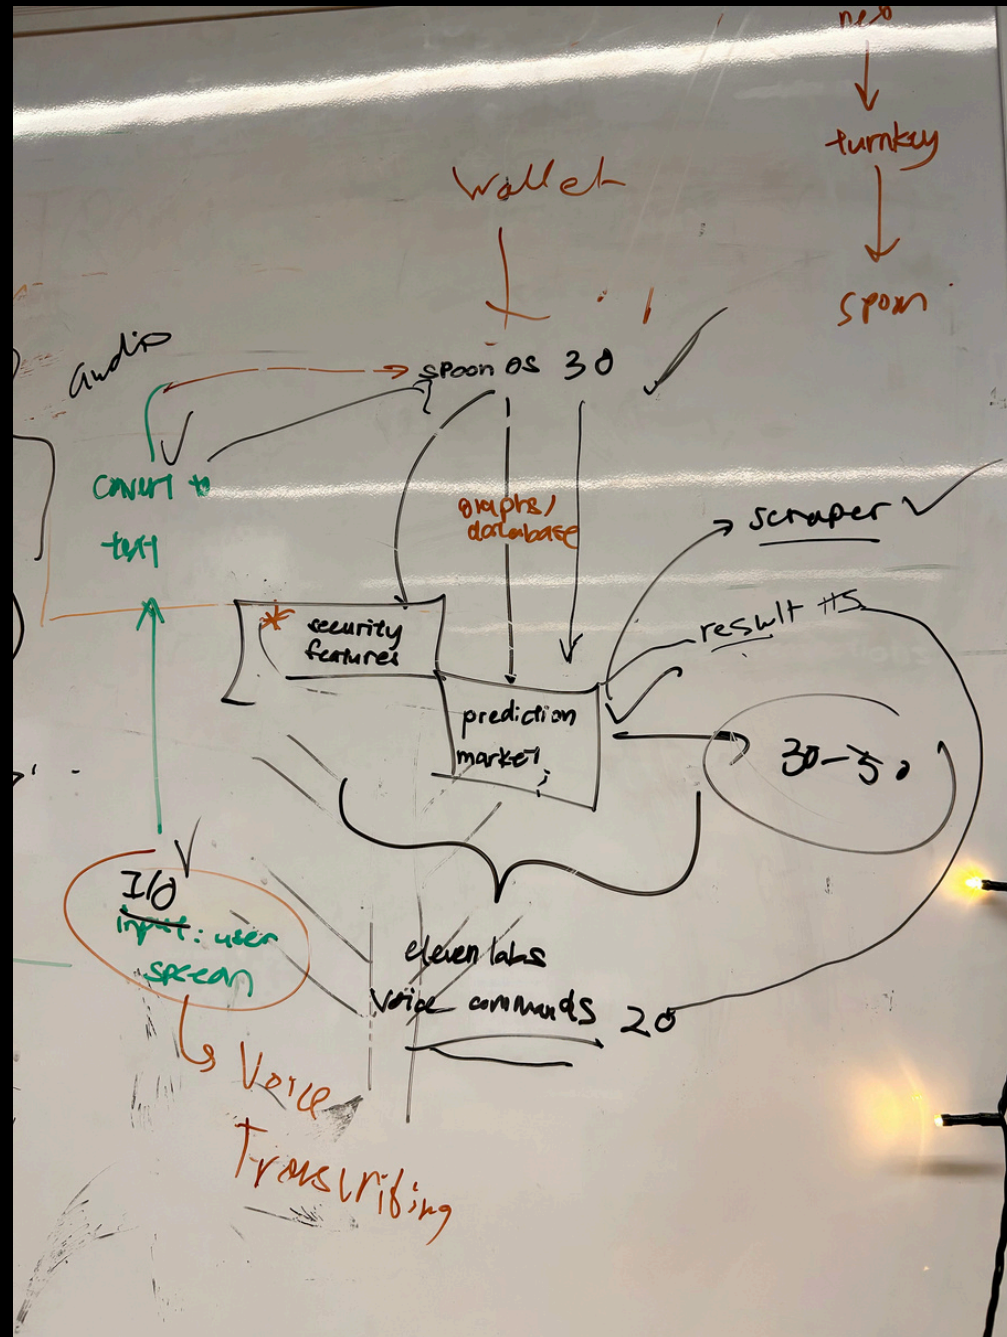 neo
turnkey
spoon
Wallet
audio
spoon OS 30
convert to
text
graphs/
database
scraper
* security
features
result
prediction
market
30-50
I/O
input: user
speech
eleven labs
Voice commands 20
Voice
Transcribing